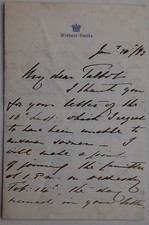 Windsor Castle.
My dear Talbot,
I thank you
for your letter of the
18th inst. which I regret
to have been unable to
answer sooner — I
will make a point
of joining the
on Wednesday
Feb. 14th, the day
named in your letter